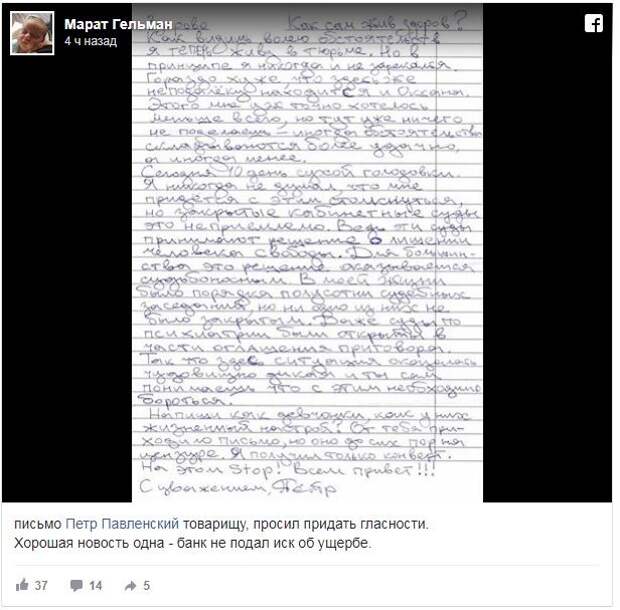 Марат Гельман
4 ч назад
Здорово Как сам жив здоров?
Как видишь волею обстоятельств
я теперь живу в тюрьме. Но в
принципе я никогда и не зарекался.
Гораздо хуже, что здесь же
неподалёку находится и Оксана.
Этого мне уж точно хотелось
меньше всего, но тут уже ничего
не поделаешь – иногда обстоятельства
складываются более удачно,
а иногда менее.
Сегодня 10 день сухой голодовки.
Я никогда не думал, что мне
придется с этим столкнуться,
но закрытые кабинетные суды
это неприемлемо. Ведь эти суды
принимают решение о лишении
человека свободы. Для большин-
ства это решение оказывается
судьбоносным. В моей жизни
было порядка полусотни судебных
заседаний, но ни одно из них не
было закрытым. Даже суды по
психиатрии были открыты в
части оглашения приговора.
Так что здесь ситуация оказалась
чудовищно дикая и ты сам
понимаешь что с этим необходимо
бороться.
Напиши как девчонки, как у них
жизненный настрой? От тебя при-
ходило письмо, но оно до сих пор на
цензуре. Я получил только конверт.
На этом Stop! Всем привет!!!
С уважением, Петр
письмо Петр Павленский товарищу, просил придать гласности.
Хорошая новость одна - банк не подал иск об ущербе.
37 14 5